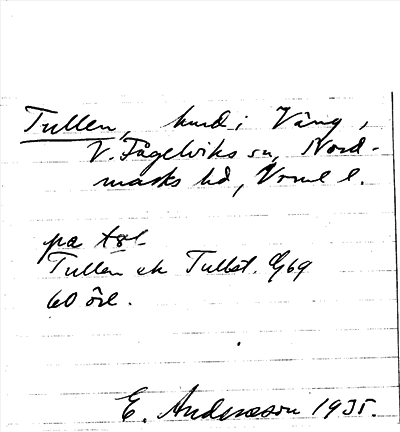 Tullen, hmd i Vång,
V. Fågelviks sn, Nord-
marks hd, Vrml l.
på
Tullen ek Tullst. 69
60 öre.
E. Andersson 1935.